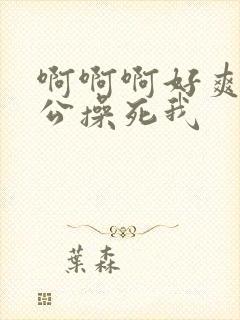 啊啊啊好爽
公操死我
葉森